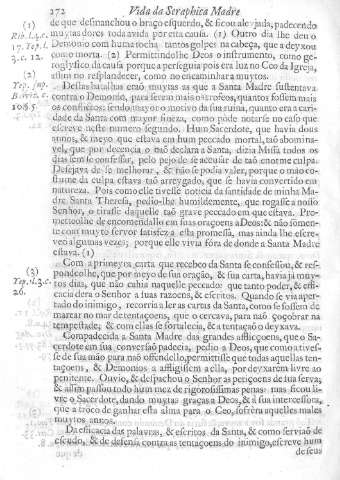 272 Vida da Seraphica Madre
(1) de que desmanchou o braço esquerdo, & ficou aleijada, padecendo
Rib. l.4.c. muytas dores toda a vida por esta causa. (1) Outro dia lhe deu o
17. Yep. l. Demonio com huma tocha tantos golpes na cabeça, que a deyxou
3. c. 12. como morta. (2) Permittindolhe Deos o instrumento, como ge-
(2) roglyfico da causa porque a perseguia pois era luz no Ceo da Igreja,
assim no resplandecer, como no encaminhar a muytos.
Yep. sup. Destas batalhas erão muytas as que a Santa Madre sustentava
contra o Demonio, para serem mais os trofeos, quantos fossem mais
1085. os conflictos: sendo mayor o motivo da sua ruina, quanto era a cari-
dade da Santa com mayor fineza, como póde notarse no caso que
escreve neste numero segundo. Hum Sacerdote, que havia dous
annos, & meyo que estava em hum peccado mortal, taõ abomina-
vel, que por decencia o naõ declara a Santa, dizia Missa todos os
dias sem se confessar, pelo pejo de se accusar de taõ enorme culpa.
Desejava de se melhorar, & não se podia valer, porque o mao co-
stume da culpa estava taõ arreygado, que se havia convertido em
natureza. Pois como elle tivesse noticia da santidade de minha Ma-
dre Santa Theresa, pedio-lhe humildemente, que rogasse a nosso
Senhor, o tirasse daquelle taõ grave peccado em que estava. Pro-
metteolhe de encomendallo em suas oraçoens a Deos: & não sómen-
te com muyto servor satisfez a esta promessa, mas ainda lhe escre-
veo algumas vezes; porque elle vivia fóra de donde a Santa Madre
estava. (1)
(3) Com a primeyra carta que recebeo da Santa se confessou, & res-
Yep. l.3.c. pondeolhe, que por meyo de sua oração, & sua carta, havia já muy-
26. tos dias, que não cahia naquelle peccado: que tanto poder, & effi-
cacia dera o Senhor a suas razoens, & escritos. Quando se via aper-
tado do inimigo, recorria a ler as cartas da Santa, como se fossem do
marear no mar de tentaçoens, que o cercava, para naõ çoçobrar na
tempestade; & com ellas se fortalecia, & a tentaçaõ o deyxava.
Compadecida a Santa Madre das grandes afflicçoens, que o Sa-
cerdote em sua conversaõ padecia, pedio a Deos, que como a tives-
se de sua mão para naõ offendello, permittisse que todas aquellas ten-
taçoens, & Demonios a affligissem a ella, por deyxarem livre ao
penitente. Ouvio, & despachou o Senhor as petiçoens de sua serva;
& assim passou todo hum mez de rigorosissimas penas: mas ficou li-
vre o Sacerdote, dando muytas graças a Deos, & á sua intercessora,
que a troco de ganhar esta alma para o Ceo, sofrèra aquelles males
muytos annos.
Da efficacia das palavras, & escritos da Santa, & como serviaõ de
escudo, & de defensa contra as tentaçoens do inimigo, escreve hum
de seus